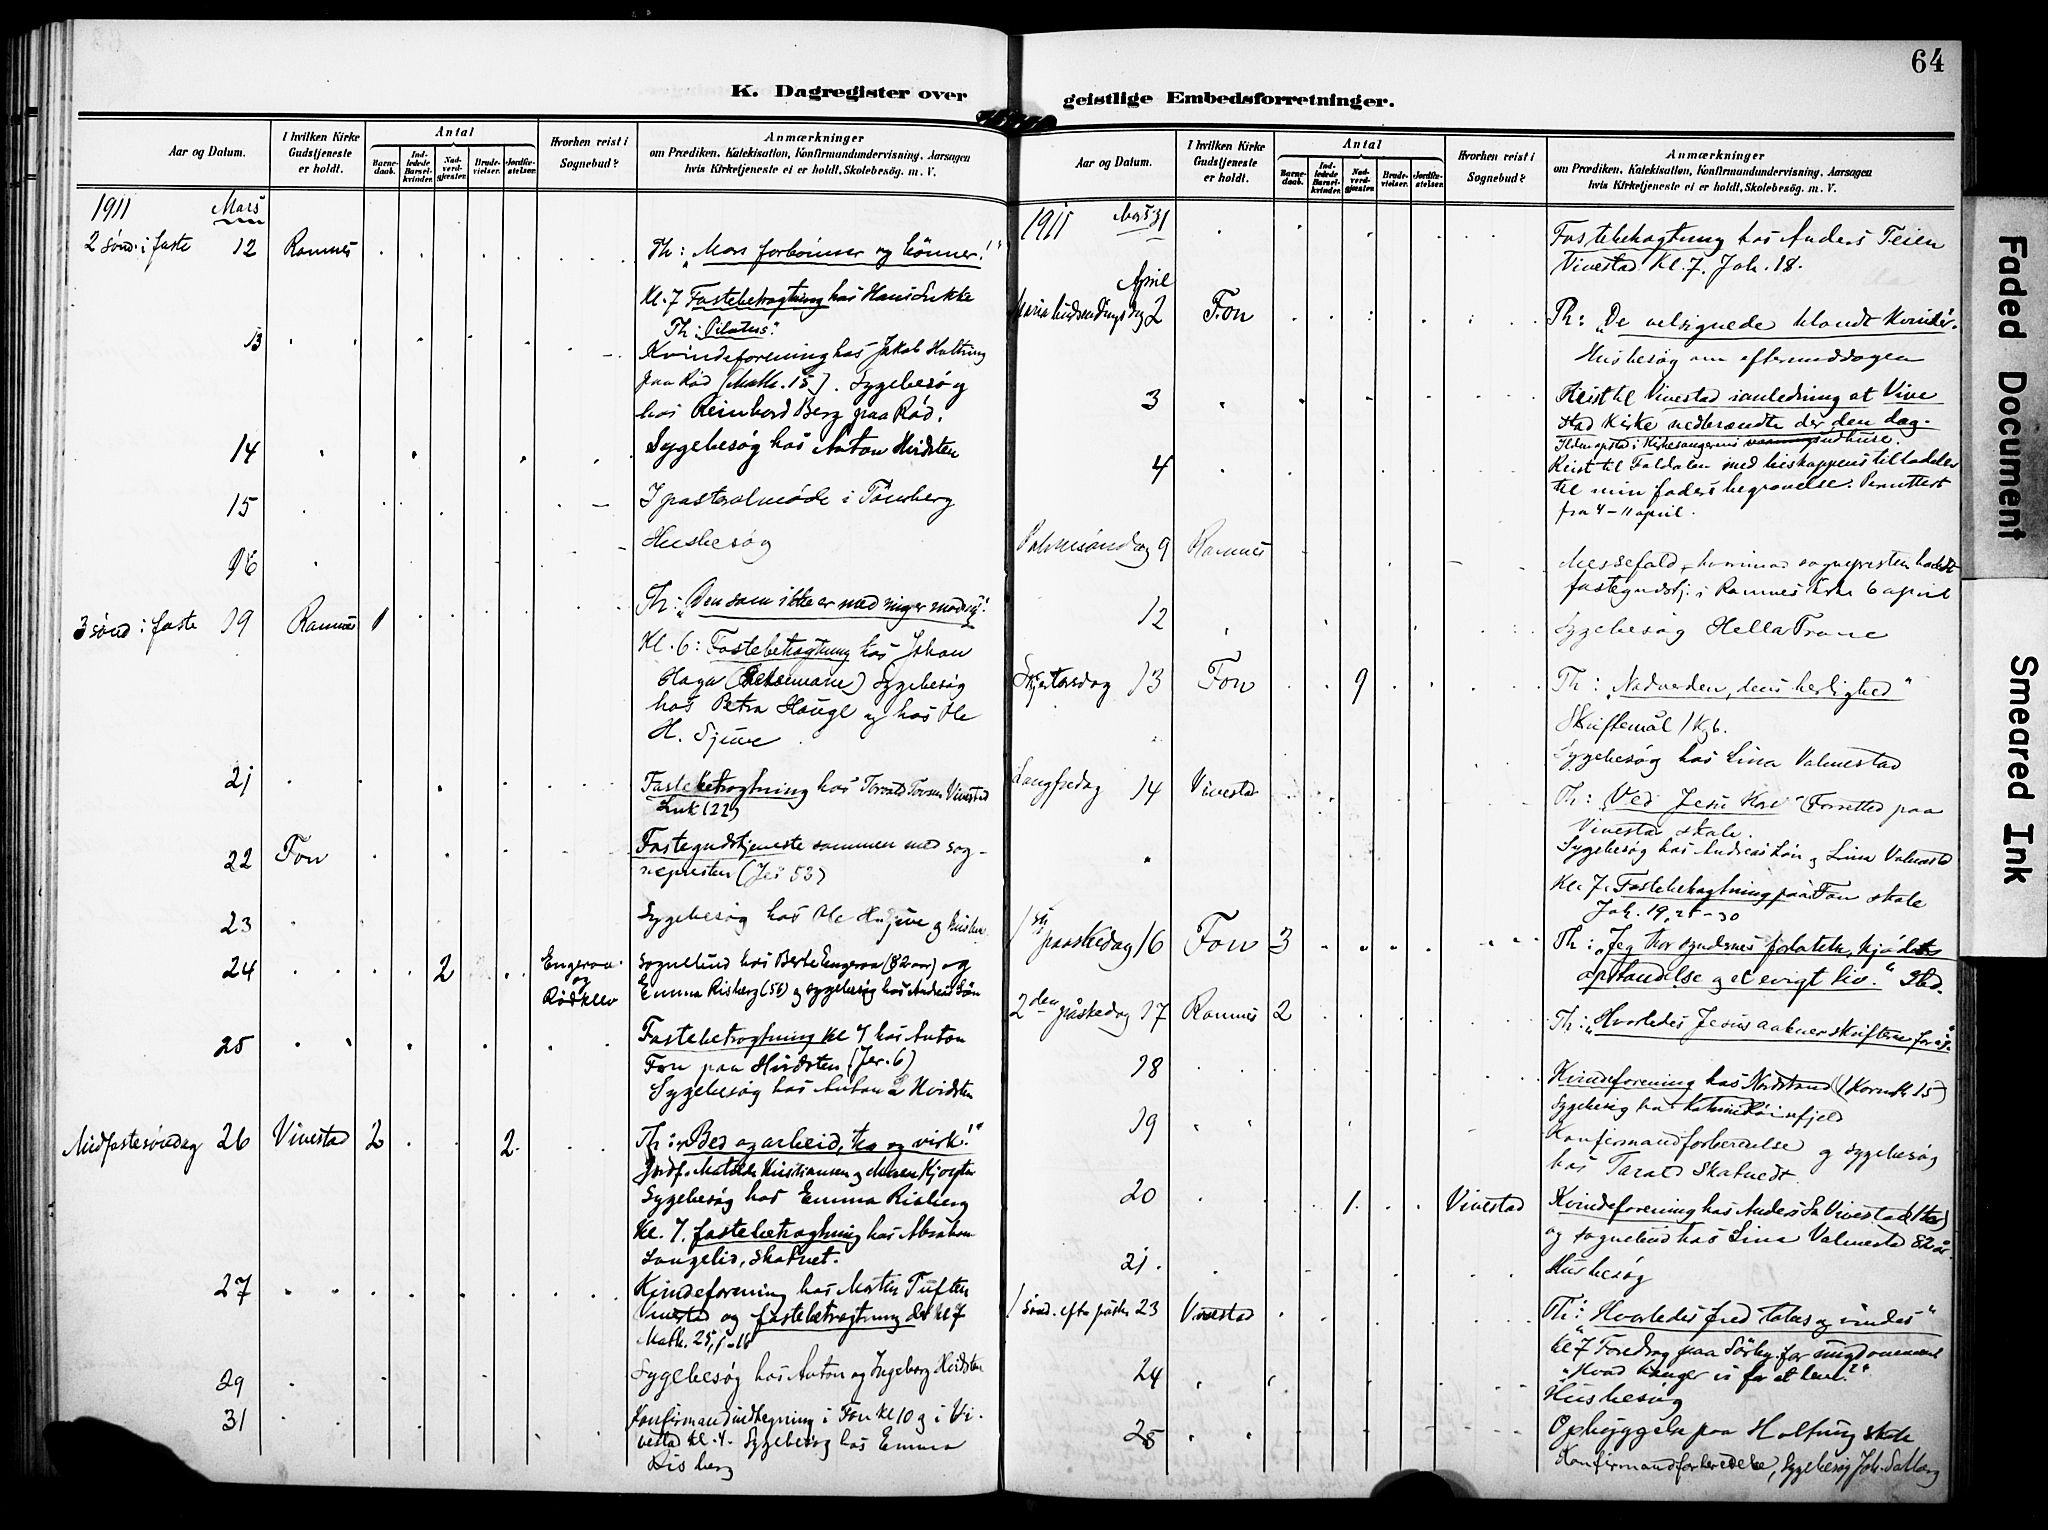 64
K. Dagregister over
geistlige Embedsforretninger.
Aar og Datum.
I hvilken Kirke
Gudstjeneste
er holdt.
Antal
Barne-
daab.
Ind-
ledede
Barsel-
kvinder.
Nad-
verd-
gjester.
Brude-
vielser.
Jordfæ-
stelser.
Hvorhen reist i
Sognebud?
Anmærkninger
om Prædiken, Katekisation, Konfirmandundervisning, Aarsagen
hvis Kirketjeneste ei er holdt, Skolebesøg. m. V.
1911 Mars
2 sønd. i faste 12 Ramnes Th: "Mors forbønner og bønner!"
Kl. 7 Fastebetragtning hos Hans
Th: "Pilatus".
13 Kvindeforening hos Jakob Holtung
paa Rød (Matth. 15). Sygebesøg
hos Reinhord Berg paa Rød.
14 Sygebesøg hos Anton Hvidsten
15 I pastoralmøde i Tønsberg
16 Husbesøg
3 sønd i faste 19 Ramnes 1 Th: "Den som ikke er med mig er mod mig".
Kl. 6: Fastebetragtning hos Johan
Haga (Getsemane) Sygebesøg
hos Petra Hauge og hos Ole
H. Gjuve
21 Fastebetragtning hos Torvald Vivestad
Luk (22)
22 Fon Fastegudstjeneste sammen med sog-
nepresten (Jes 53)
23 Sygebesøg hos Ole H. Gjuve og
24 2 Engeraa Sognebud hos Berte Engeraa (82 aar) og
og
Rødklev Emma Risberg (56) og sygebesøg hos Andreas Løn
25 Fastebetragtning kl 7 hos Anton
Fon paa Hvidsten (Jer. 6)
Sygebesøg hos Anton Hvidsten
Midfastesøndag 26 Vivestad 2 2 Th: "Bed og arbeid, tro og virk!"
Jordf. Matilde Kristiansen og Maren
Sygebesøg hos Emma Risberg
Kl. 7. fastebetragtning hos Abraham
Langelid, Skatvet.
27 Kvindeforening hos Morten Tuften
Vivestad og fastebetragtning der kl 7
Math. 25, 1-18
29 Sygebesøg hos Anton og Ingeborg Hvidsten
31 Konfirmandindtegning i Fon kl 10 og i Vi-
vestad kl. 4. Sygebesøg hos Emma
Risberg
Aar og Datum.
I hvilken Kirke
Gudstjeneste
er holdt.
Antal
Barne-
daab.
Ind-
ledede
Barsel-
kvinder.
Nad-
verd-
gjester.
Brude-
vielser.
Jordfæ-
stelser.
Hvorhen reist i
Sognebud?
Anmærkninger
om Prædiken, Katekisation, Konfirmandundervisning, Aarsagen
hvis Kirketjeneste ei er holdt, Skolebesög. m. V.
1911 Mars 31 Fastebetragtning hos Anders Teien
Vivestad kl. 7. Joh. 18.
April
Maria budskabsdag 2 Fon Th: "De velsignede blandt kvinder.
Husbesøg om eftermiddagen
3 Reist til Vivestad i anledning at Vive
stad Kirke nedbrændte der den dag.
Ilden opstod i kirkesangerens udhuse.
4 Reist til Foldalen med biskoppens tilladelse
til min faders begravelse. Permittert
fra 4-11 april.
Palmesøndag 9 Ramnes Messefald, hvorimod sognepresten holdt
fastegudstj. i Ramnes kirke 6 april
12 Sygebesøg Hella Trane
Skjærtorsdag 13 Fon 9 Th: "Nadverden, dens herlighed"
Skriftemål
Sygebesøg hos Lina Valmestad
Langfredag 14 Vivestad Th: "Ved Jesu Kors" (Forretted paa
Vivestad skole.
Sygebesøg hos Andreas Løn og Lina Valmestad
Kl. 7. Fastebetragtning paa Fon skole
Joh. 19, 25-30
1ste paaskedag 16 Fon 3 Th: "Jeg tror syndernes forlatelse, kjødets
opstandelse og et evigt liv."
2den påskedag 17 Ramnes 2 Th: "Hvorledes Jesus aabner skriftene for os".
18 Kvindeforening hos Nordstrand (1 Korinth 15)
Sygebesøg hos
19 Konfirmandforberedelse og sygebesøg
hos Tarald Skatvedt.
20 1 Vivestad Kvindeforening hos Anders Vivestad
og sognebud hos Lina Valmestad 82 år.
21. Husbesøg
1 sønd. efter påske 23 Vivestad Th: "Hvorledes fred tabes og vindes"
Kl 7 Foredrag paa Sørby for ungdommen
24 "Hvad trænger vi for at leve?"
Husbesøg
25 Ophyggelse paa Holtung skole
Konfirmandforberedelse, Sygebesøg Joh.
Faded Document
Smeared Ink